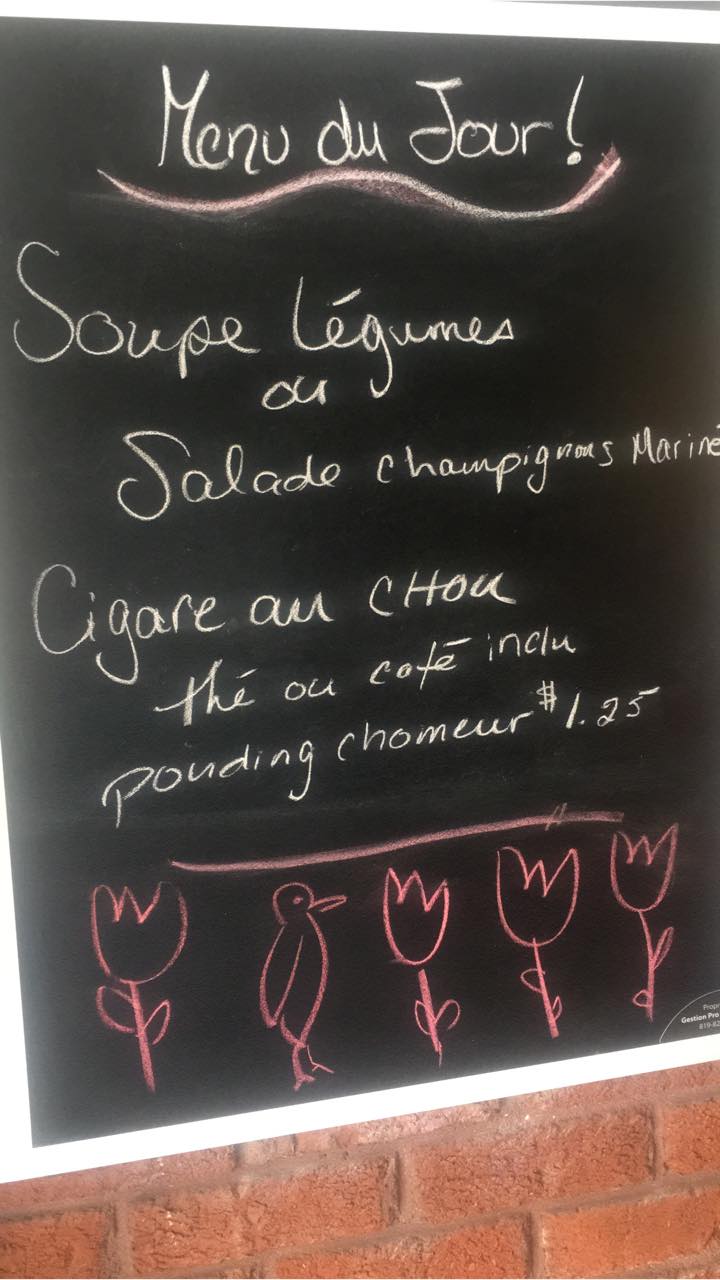 Menu du Jour!
Soupe légumes
ou
Salade champignons Mariné
Cigare au CHOU
thé ou café inclu
pouding chomeur $1.25
Propri
Gestion Pro
819-82